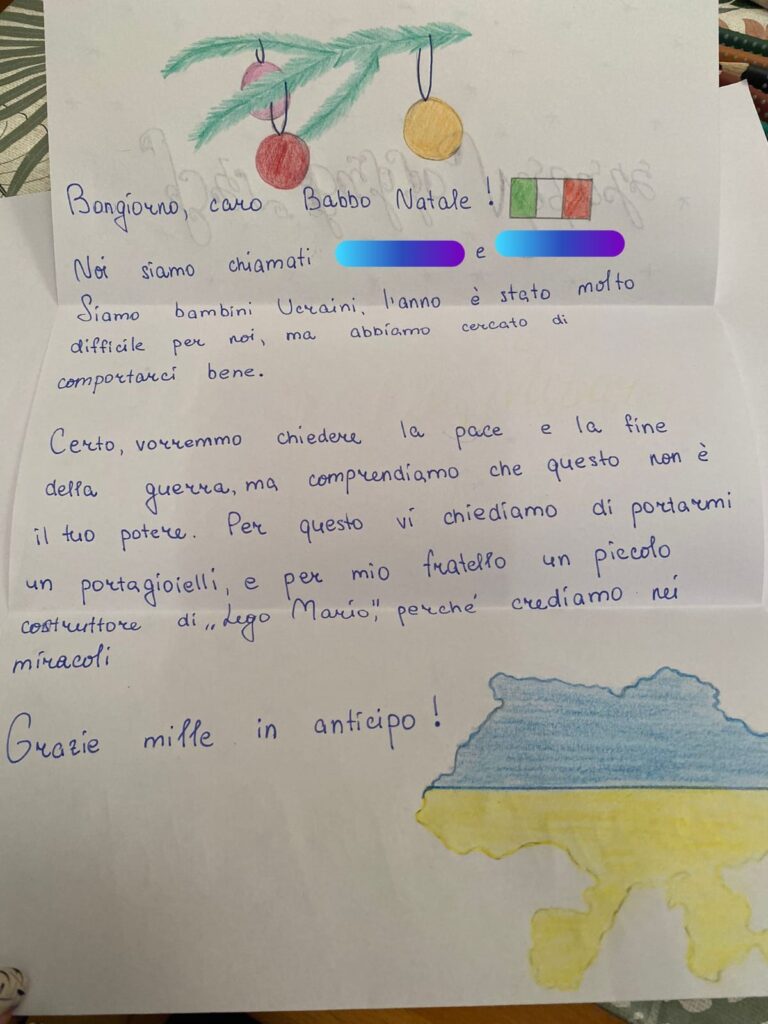 Bongiorno, caro Babbo Natale!
Noi siamo chiamati e
Siamo bambini Ucraini, l'anno è stato molto
difficile per noi, ma abbiamo cercato di
comportarci bene.
Certo, vorremmo chiedere la pace e la fine
della guerra, ma comprendiamo che questo non è
il tuo potere. Per questo vi chiediamo di portarmi
un portagioielli, e per mio fratello un piccolo
costruttore di „Lego Mario", perché crediamo nei
miracoli
Grazie mille in anticipo!